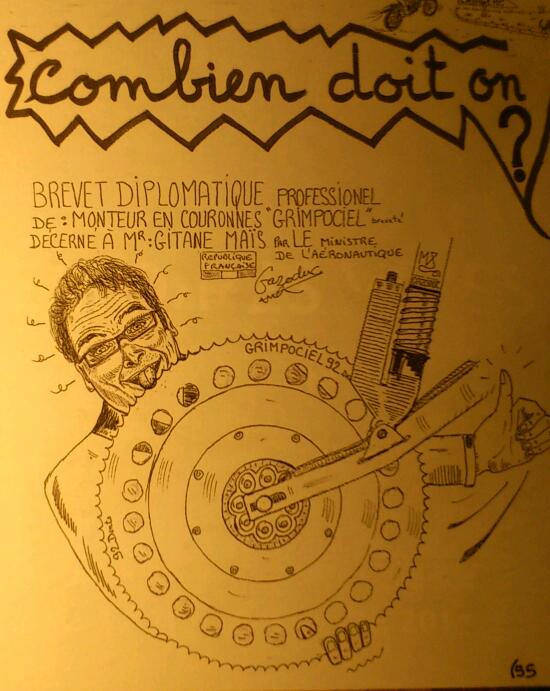 Combien doit on
?
BREVET DIPLOMATIQUE PROFESSIONEL
DE : MONTEUR EN COURONNES "GRIMPOCIEL" breveté
DÉCERNÉ À MR : GITANE MAÏS PAR LE MINISTRE
DE L'AÉRONAUTIQUE
REPUBLIQUE
FRANÇAISE
M8
GRIMPOCIEL 92
59 Dents
(95